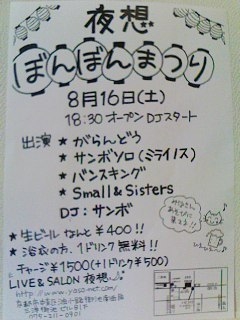 夜想
ぼんぼんまつり
8月16日(土)
18:30 オープン DJスタート
出演 ★ がらんどう
★ サンボソロ(ミライノス)
★ バンスキング
★ Small & Sisters
DJ: サンボ
★ 生ビール なんと ¥400!!
★ 浴衣の方、1ドリンク無料!!
チャージ ¥1500(+1ドリンク ¥500)
LIVE & SALON 夜想
京都市中京区
075-211-0901